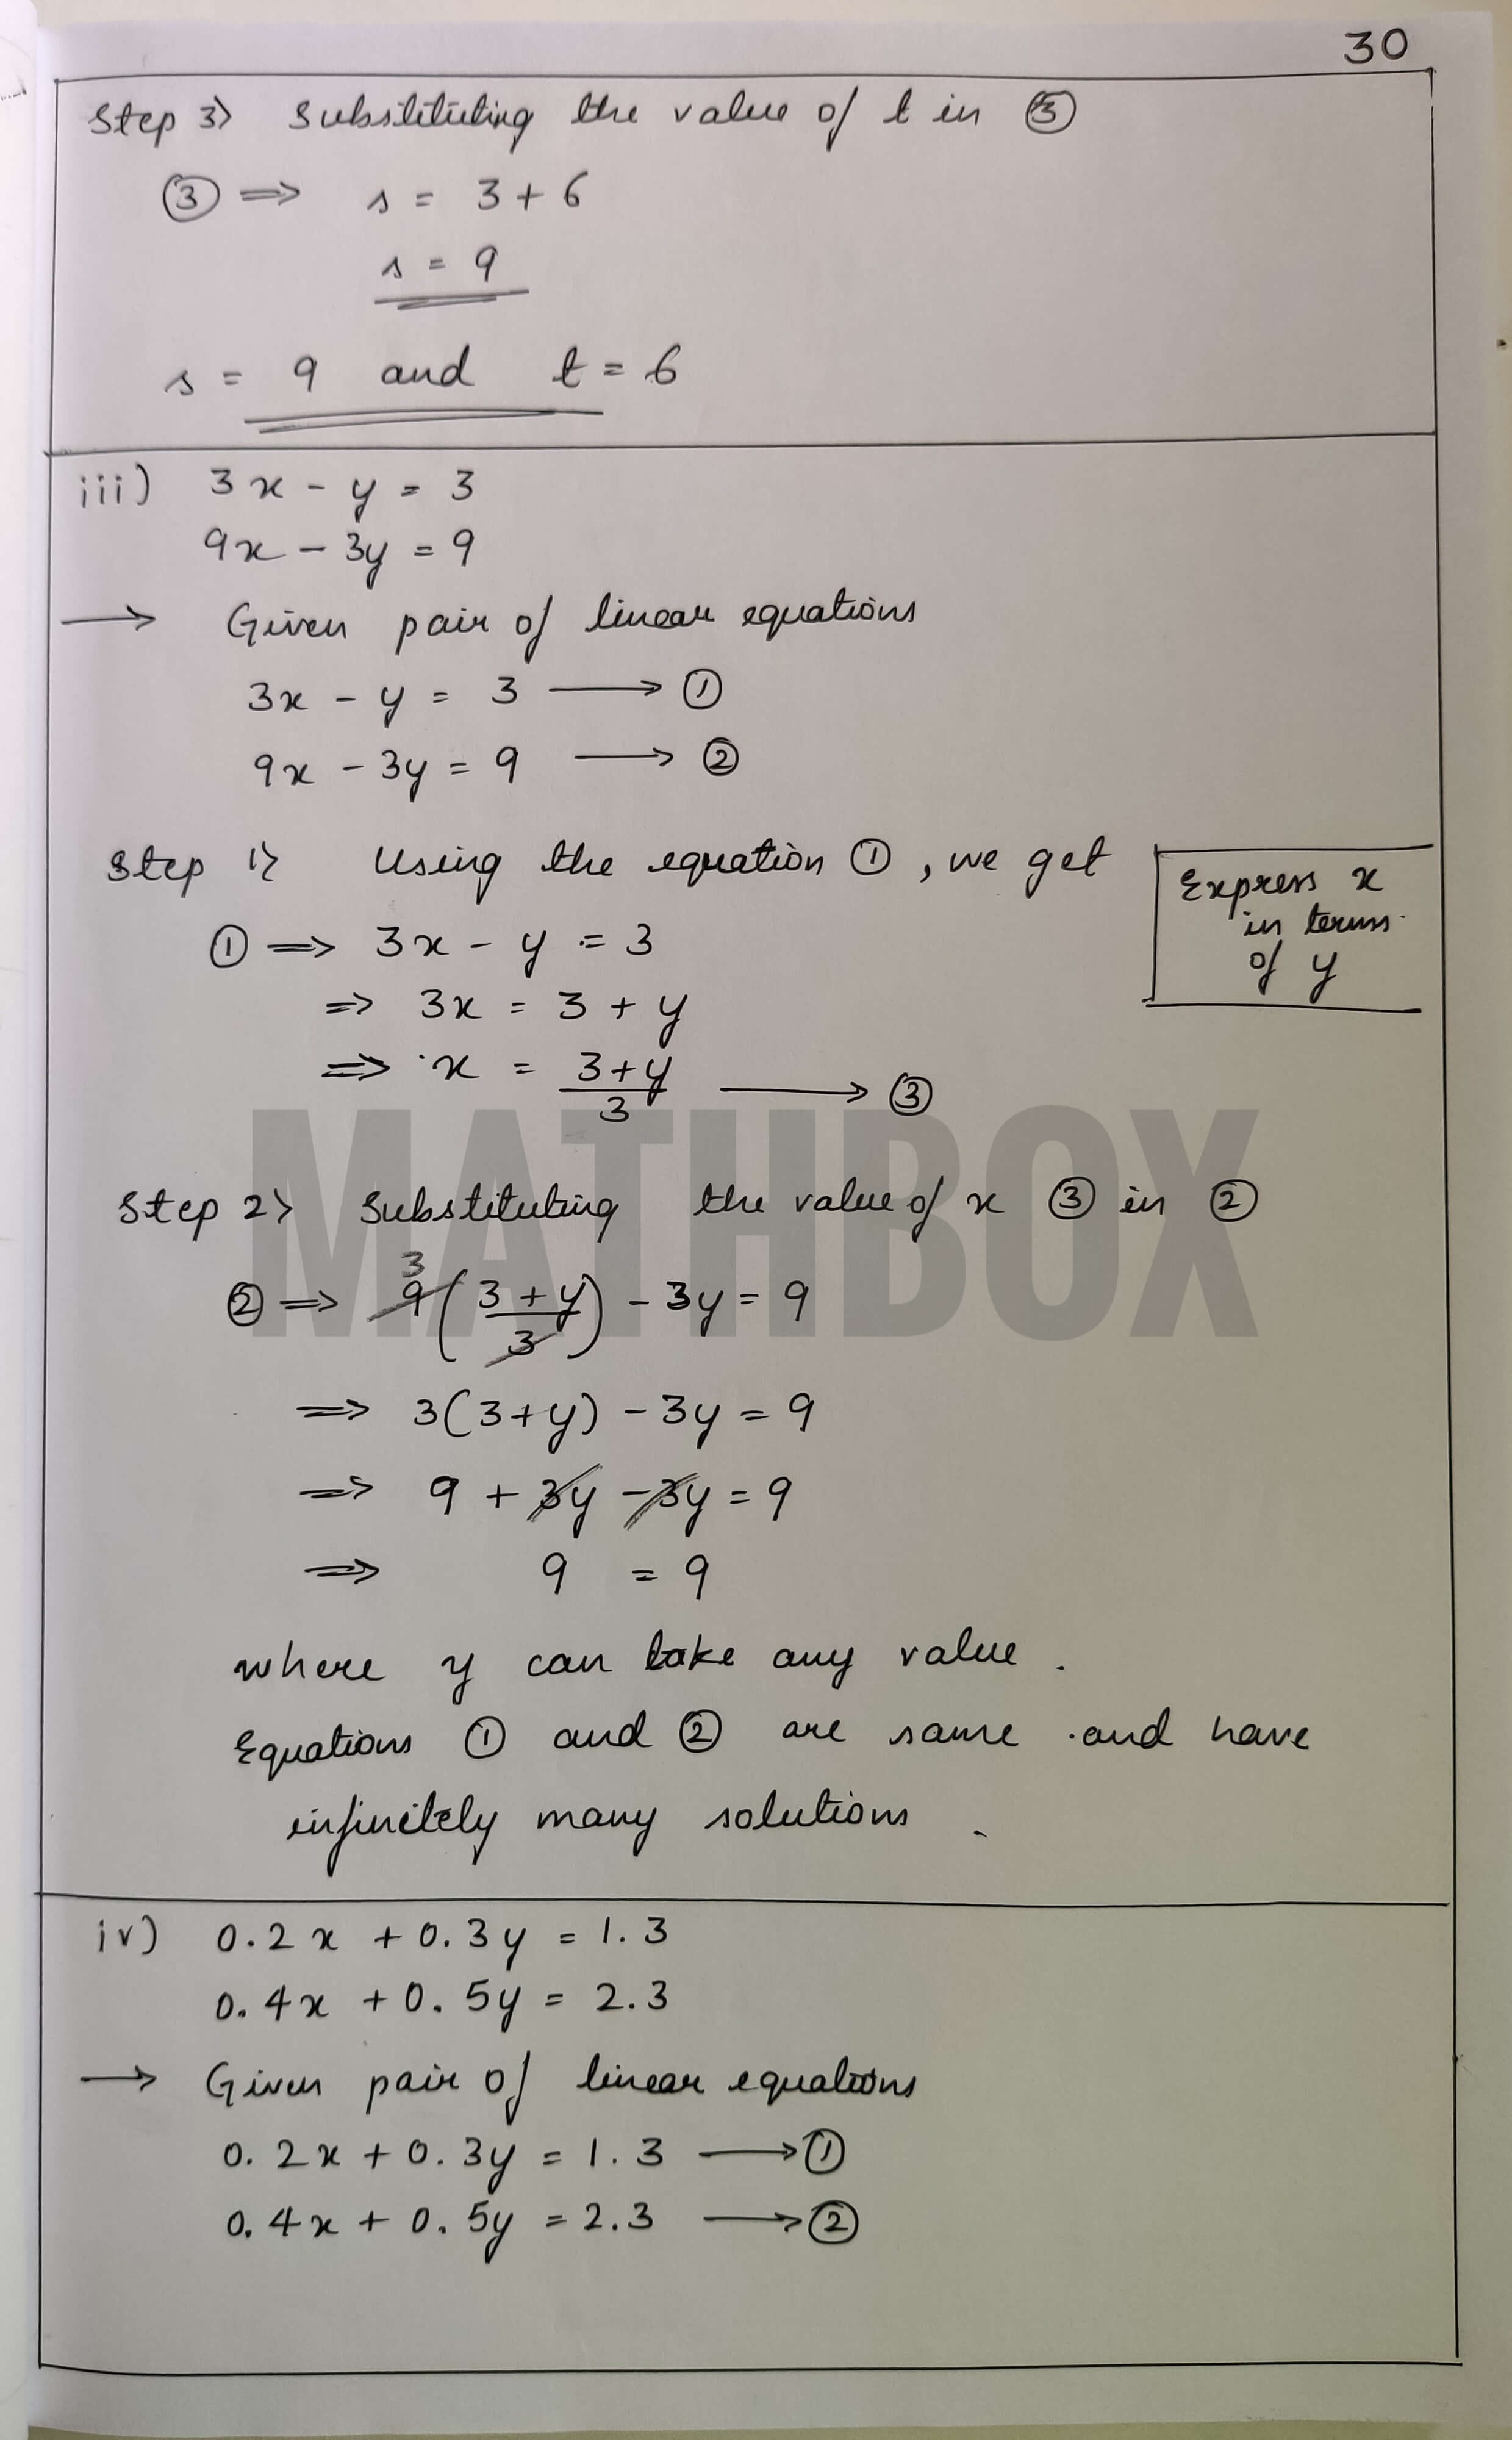 30
Step 3> Substituting the value of t in ③
③ ⇒ s = 3 + 6
s = 9
s = 9 and t = 6
iii) 3x - y = 3
9x - 3y = 9
→ Given pair of linear equations
3x - y = 3 → ①
9x - 3y = 9 → ②
Step 1> Using the equation ①, we get
Express x
in terms
of y
① ⇒ 3x - y = 3
⇒ 3x = 3 + y
⇒ x = (3+y)/3 → ③
MATHBOX
Step 2> Substituting the value of x ③ in ②
3
② ⇒ 9((3+y)/3) - 3y = 9
⇒ 3(3+y) - 3y = 9
⇒ 9 + 3y - 3y = 9
⇒ 9 = 9
where y can take any value.
Equations ① and ② are same and have
infinitely many solutions.
iv) 0.2x + 0.3y = 1.3
0.4x + 0.5y = 2.3
→ Given pair of linear equations
0.2x + 0.3y = 1.3 → ①
0.4x + 0.5y = 2.3 → ②